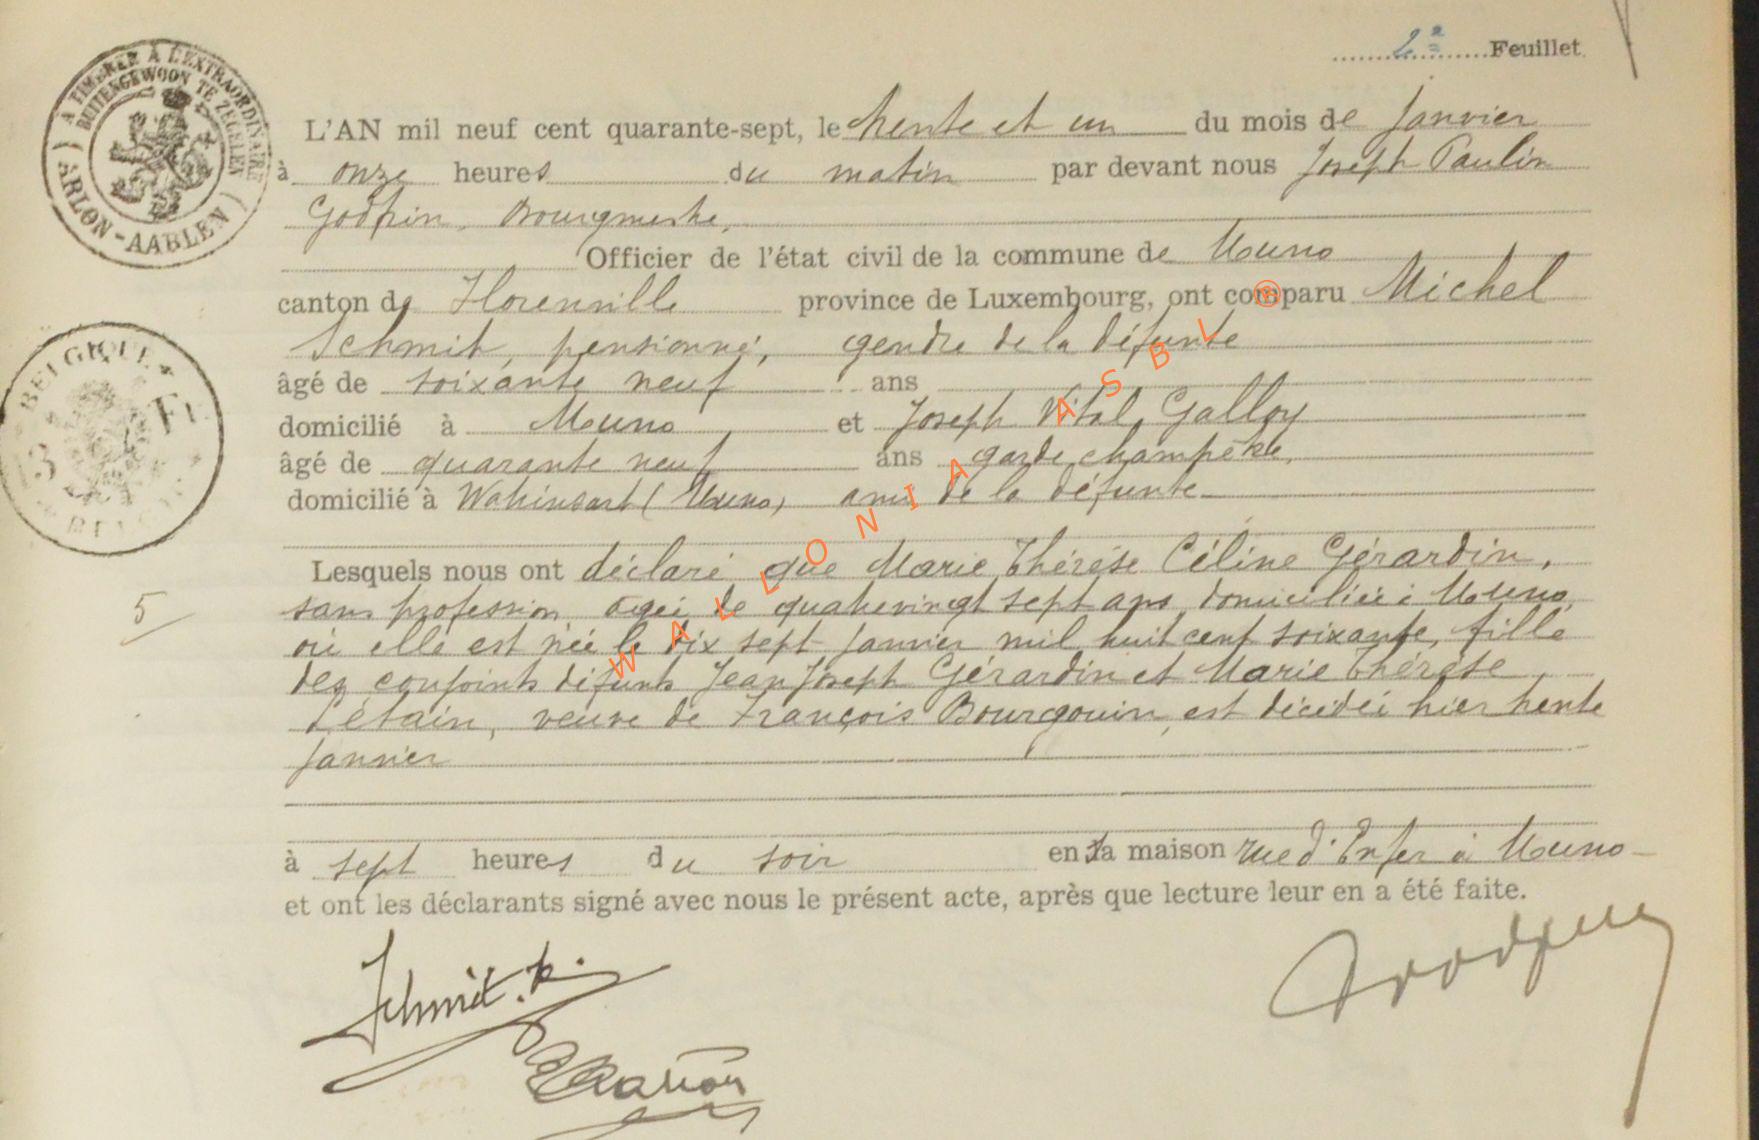 2e Feuillet
A TIMBRER À L'EXTRAORDINAIRE
BUITENGEWOON TE ZEGELEN
(ARLON-AARLEN)
L'AN mil neuf cent quarante-sept, le trente et un du mois de janvier
à onze heures du matin par devant nous Joseph Paulin
Godfrin, Bourgmestre,
Officier de l'état civil de la commune de Muno
canton de Florenville province de Luxembourg, ont comparu Michel
Schmit, pensionné, gendre de la défunte
âgé de soixante neuf ans
domicilié à Muno et Joseph Vital Galloy
âgé de quarante neuf ans garde champêtre,
domicilié à Watrinsart (Muno) ami de la défunte
BELGIQUE
3 Fr
BELGIË
Lesquels nous ont déclaré que Marie Thérèse Céline Gérardin,
sans profession, âgée de quatrevingt sept ans, domiciliée à Muno,
5
où elle est née le dix sept janvier mil huit cent soixante, fille
des conjoints défunts Jean Joseph Gérardin et Marie Thérèse
Létain, veuve de François Bourgouin, est décédée hier trente
janvier
à sept heures du soir en sa maison rue d'Enfer à Muno
et ont les déclarants signé avec nous le présent acte, après que lecture leur en a été faite.
Schmit.
WALLONIA ASBL ®